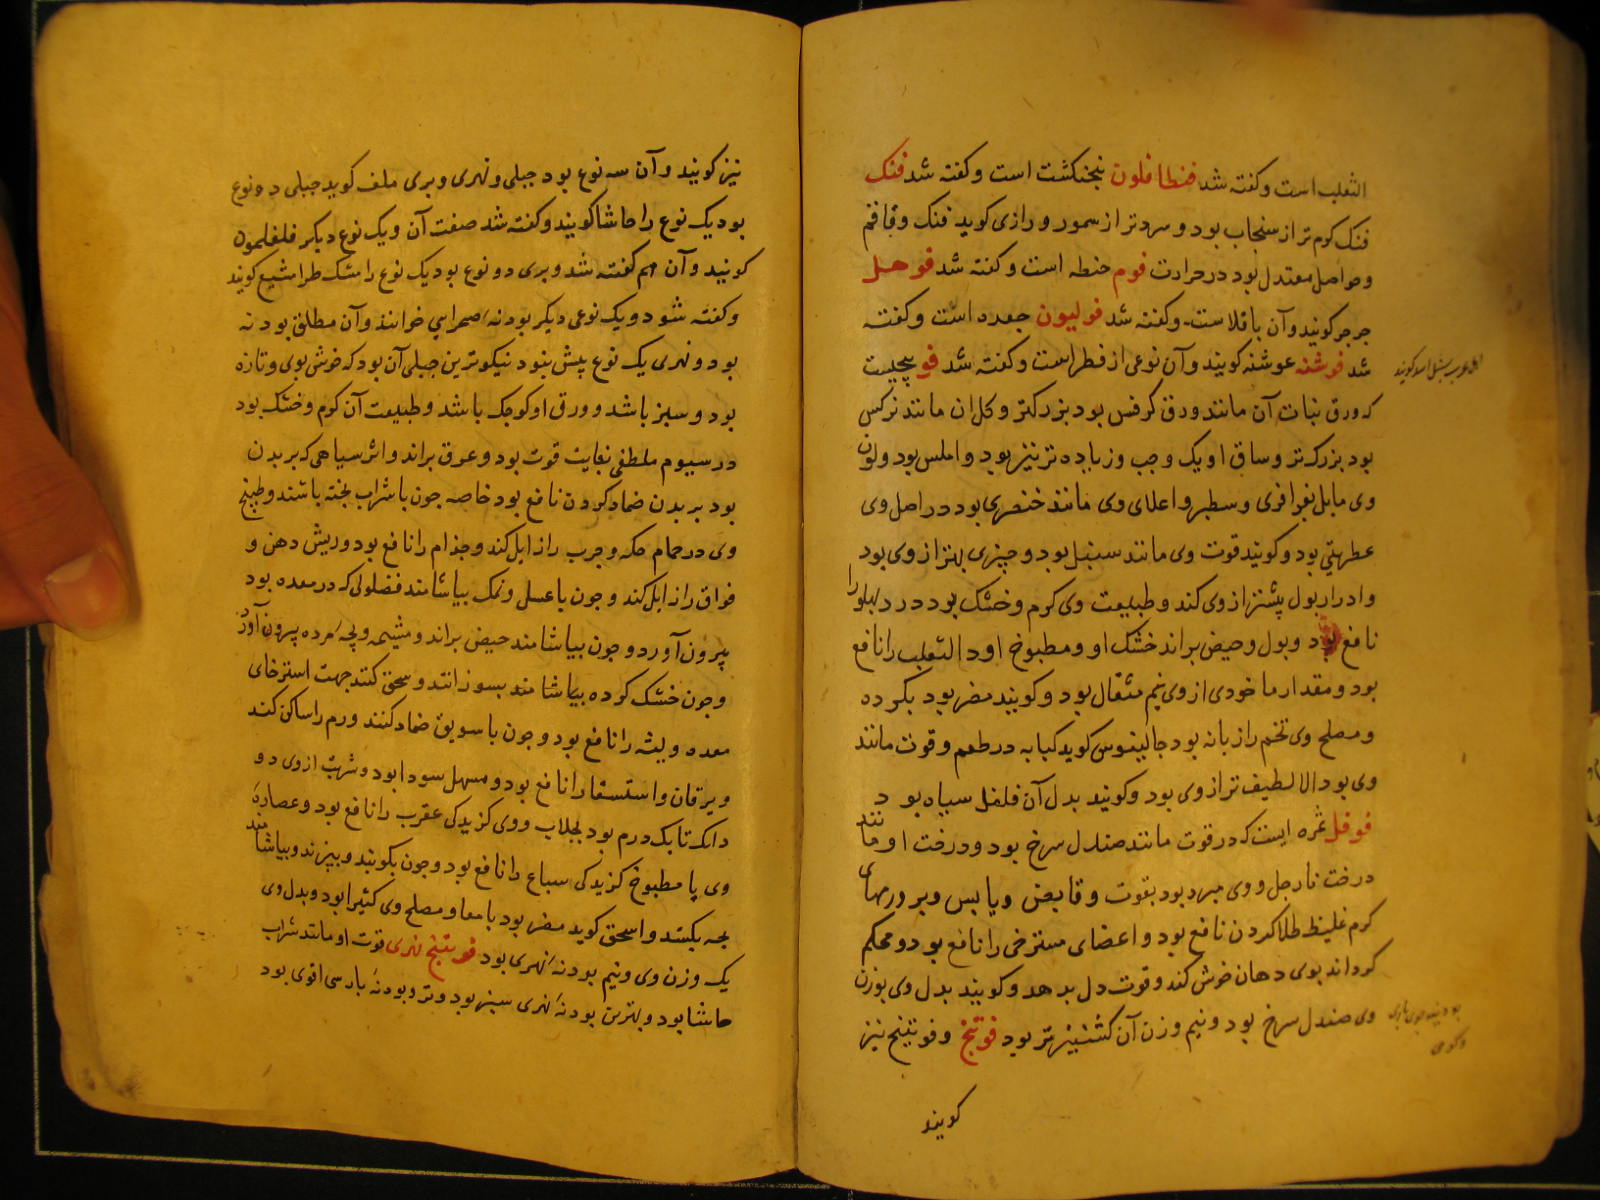 الثعلب است و کفته شد فنطافلون بنجنکشت است و کفته شد فنک
فنک کرم تر از سنجاب بود و سردتر از سمور و رازی کوید فنک و قاقم
و حواصل معتدل بود در حرارت فوم حنطه است و کفته شد فوحل
جرجر کویند و آن باقلاست و کفته شد فولیون جعده است و کفته
شد فوشنه عوشنه کویند و آن نوعی از فطر است و کفته شد فو
که ورق نبات آن مانند ورق کرفس بود بزرکتر و کل ان مانند نرکس
بود بزرک تر و ساق او یک وجب و زیاده تر نیز بود و املس بود و لون
وی مایل بفرفری و سطبر و اعلای وی مانند خنصری بود در اصل وی
عطریتی بود و کویند قوت وی مانند سنبل بود و چیزی بهتر از وی بود
و ادرار بول پیشتر از وی کند و طبیعت وی کرم و خشک بود درد بهلو را
نافع بود و بول و حیض براند خشک او و مطبوخ او داء الثعلب را نافع
بود و مقدار ماخودی از وی نیم مثقال بود و کویند مضر بود بکرده
و مصلح وی تخم رازیانه بود جالینوس کوید کبابه در طعم و قوت مانند
وی بود الا لطیف تر از وی بود و کویند بدل آن فلفل سیاه بود
فوفل ثمره ایست که در قوت مانند صندل سرخ بود و درخت او مانند
درخت نارجل و وی مبرد بود بقوت و قابض و یابس و بر ورمهای
کرم غلیظ طلا کردن نافع بود و اعضای مسترخی را نافع بود و محکم
کرداند بوی دهان خوش کند و قوت دل بدهد و کویند بدل وی بوزن
وی صندل سرخ بود و نیم وزن آن کشنیز تر بود فوتنج و فوتینج نیز
کویند
نیز کویند و آن سه نوع بود جبلی و نهری و بری ملف کوید جبلی دو نوع
بود یک نوع را حاشا کویند و کفته شد صفت آن و یک نوع دیکر فلفلمون
کویند و آن هم کفته شد و بری دو نوع بود یک نوع را مشک طرامشیع کویند
و کفته شود و یک نوعی دیکر بودنه صحرایی خوانند و آن مطلق بودنه
بود و نهری یک نوع بیش نبود نیکوترین جبلی آن بود که خوش بوی و تازه
بود و سبز باشد و ورق او کوچک باشد و طبیعت آن کرم و خشک بود
در سیوم ملطفی بغایت قوت بود و عرق براند و اثر سیاهی که بر بدن
بود بر بدن ضماد کردن نافع بود خاصه جون با شراب بخته باشند و طبیخ
وی در حمام حکه و جرب را زایل کند و جذام را نافع بود و ریش دهن و
فواق را زایل کند و جون با عسل و نمک بیاشامند فضلولی که در معده بود
بیرون آورد و جون بیاشامند حیض براند و مشیمه و بچه مرده بیرون آورد
و جون خشک کرده بیاشامند بسوزانند و سحق کنند جهت استرخای
معده و لثه را نافع بود و جون با سویق ضماد کنند ورم را ساکن کند
و یرقان و استسقا را نافع بود و مسهل سودا بود و شربت از وی دو
دانک تا یک درم بود بجلاب و وی کزیدکی عقرب را نافع بود و عصاره
وی با مطبوخ کزیدکی سباع را نافع بود و جون بکوبند و ببزند و بیاشامند
بچه بکشد و اسحق کوید مضر بود بامعا و مصلح وی کثیرا بود و بدل وی
یک وزن وی و نیم بودنه نهری بود فوتینج نهری قوت او مانند شراب
حاشا بود و بهترین بودنه نهری سبز بود و تر و بودنه بارسی اقوی بود